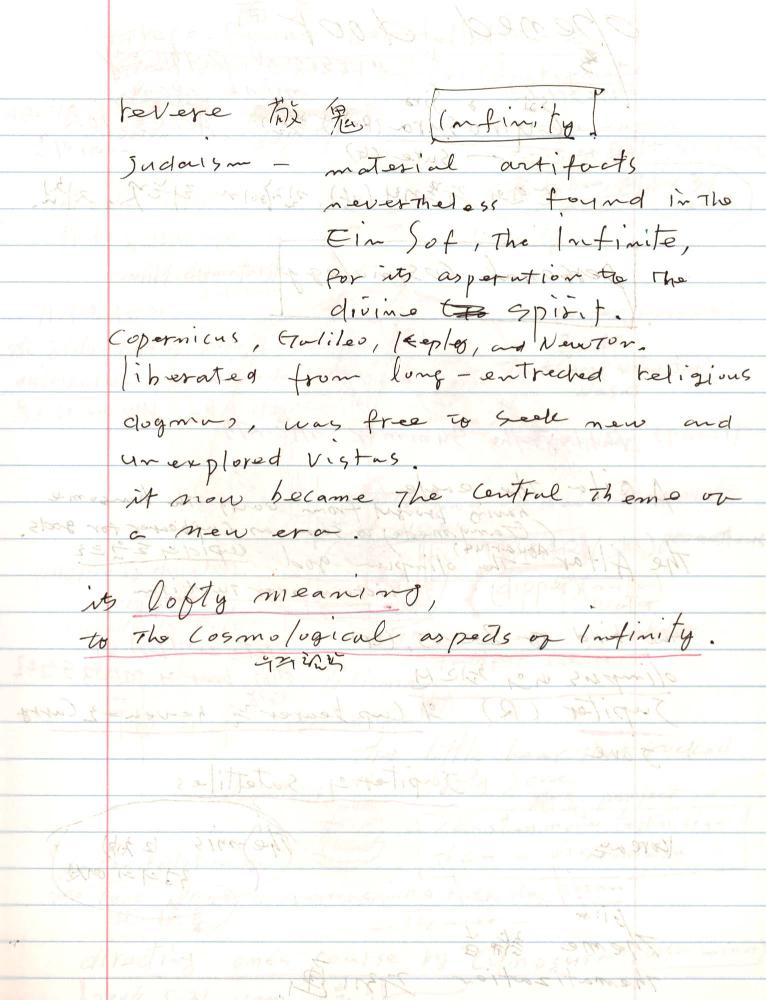 revere 敬 鬼 Infinity
Judaism – material artifacts
nevertheless found in the
Ein Sof, The Infinite,
for its asperation to the
divine spirit.
Copernicus, Galileo, Kepler, and Newton.
liberated from long-entreched religious
dogmas, was free to seek new and
unexplored vistas.
it now became the central theme of
a new era.
its lofty meaning,
to the cosmological aspects of Infinity.